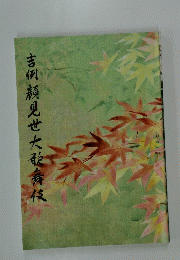 吉例顔見世大歌舞伎